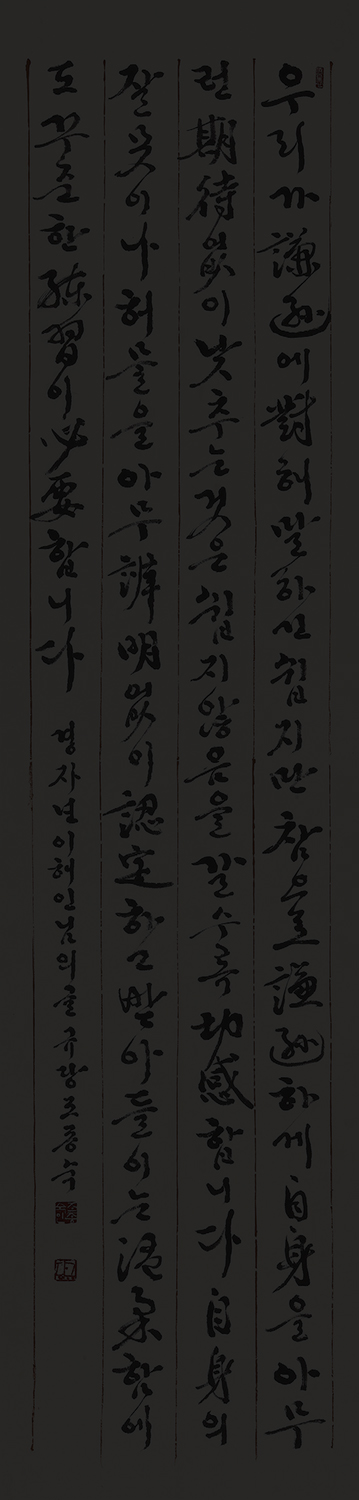 우리가 謙遜에 對해 말하긴 쉽지만 참으로 謙遜하게 自身을 아무
런 期待 없이 낮추는 것은 쉽지 않음을 갈수록 切感합니다 自身의
잘못이나 허물을 아무 辨明 없이 認定하고 받아들이는 溫柔함에
도 꾸준한 練習이 必要합니다 경자년 이해인님의 글 규당 조종숙